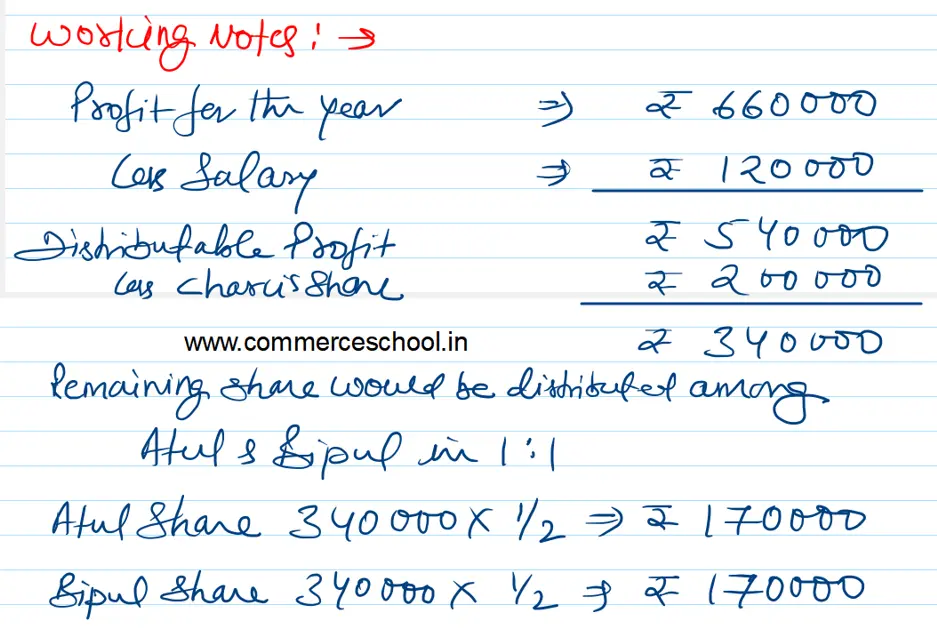 Working Notes: →
Profit for the year ⇒ ₹ 660000
Less Salary ⇒ ₹ 120000
Distributable Profit ₹ 540000
Less Charu's Share ₹ 200000
www.commerceschool.in ₹ 340000
Remaining share would be distributed among
Atul & Bipul in 1:1
Atul Share 340000 × 1/2 ⇒ ₹ 170000
Bipul Share 340000 × 1/2 ⇒ ₹ 170000